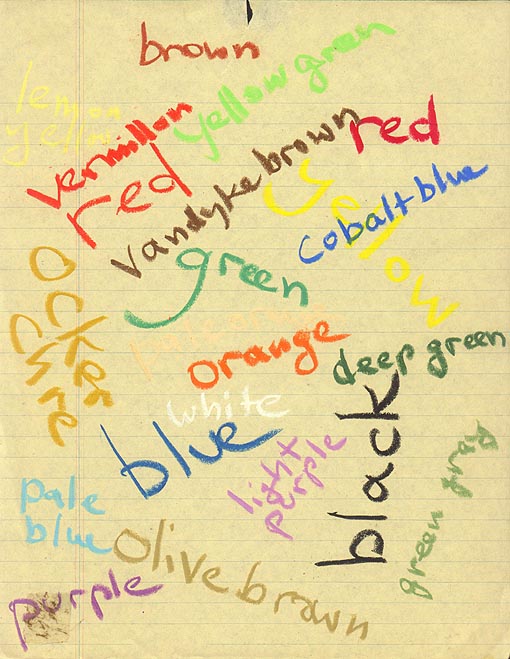 brown
yellow green
lemon
yellow
vermillon
red
red
vandyke brown
yellow
cobalt blue
green
pale orange
orange
deep green
white
black
blue
light
purple
green gray
pale
blue
Olive brown
purple